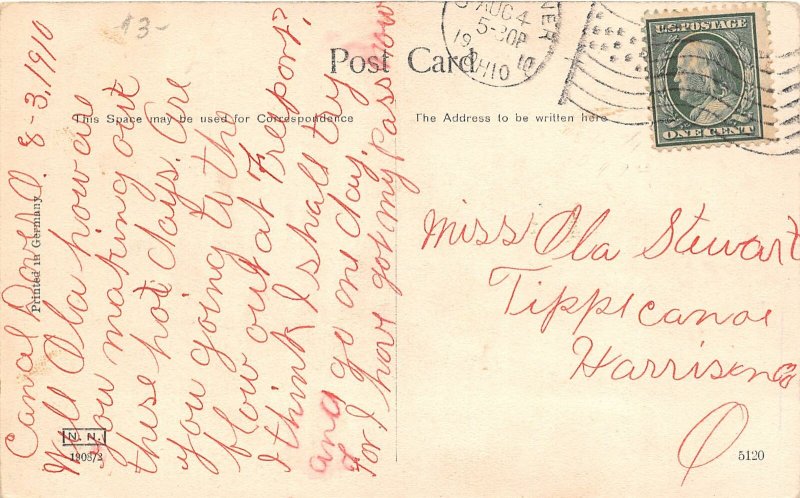 13-
Post Card
This Space may be used for Correspondence
The Address to be written here
Canal Dover O. 8-3,1910
Well Ola how are
you making out
these hot days. Are
you going to the
flow out at Freeport?
I think I shall try
and go one day.
For I have got my pass now
Printed in Germany
N. N.
5120
AUG 4
5-30P
19 10
OHIO
U.S. POSTAGE
ONE CENT
Miss Ola Stewart
Tippicanoe
Harrison Co
O